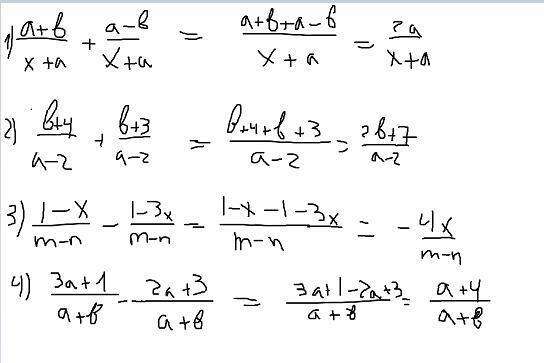 1) (a+b)/(x+a) + (a-b)/(x+a) = (a+b+a-b)/(x+a) = 2a/(x+a)
2) (b+4)/(a-2) + (b+3)/(a-2) = (b+4+b+3)/(a-2) = (2b+7)/(a-2)
3) (1-x)/(m-n) - (1-3x)/(m-n) = (1-x-1-3x)/(m-n) = - 4x/(m-n)
4) (3a+1)/(a+b) - (2a+3)/(a+b) = (3a+1-2a+3)/(a+b) = (a+4)/(a+b)